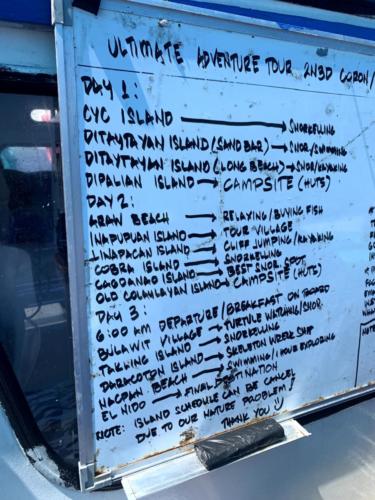 ULTIMATE ADVENTURE TOUR 2N3D CORON/
DAY 1:
CYC ISLAND → SNORKELLING
DITAYTAYAN ISLAND (SAND BAR) → SNOR/SWIMMING
DITAYTAYAN ISLAND (LONG BEACH) → SNOR/KAYAKING
DIPALIAN ISLAND → CAMPSITE (HUTS)
DAY 2:
ARAW BEACH → RELAXING/BUYING FISH
INAPUPUAN ISLAND → TOUR VILLAGE
LINAPACAN ISLAND → CLIFF JUMPING/KAYAKING
COBRA ISLAND → SNORKELLING
CAGDANAO ISLAND → BEST SNOR. SPOT
OLD CULANLAYAN ISLAND → CAMPSITE (HUTS)
DAY 3:
6:00 AM DEPARTURE/BREAKFAST ON BOARD
BULAWIT VILLAGE → TURTLE WATCHING/SNOR.
TAKLING ISLAND → SNORKELLING
DARACOTON ISLAND → SKELETON WRECK SHIP
NACPAN BEACH → SWIMMING/1 HOUR EXPLORING
EL NIDO → FINAL DESTINATION
NOTE: ISLAND SCHEDULE CAN BE CANCEL
DUE TO OUR NATURE PROBLEM!
THANK YOU